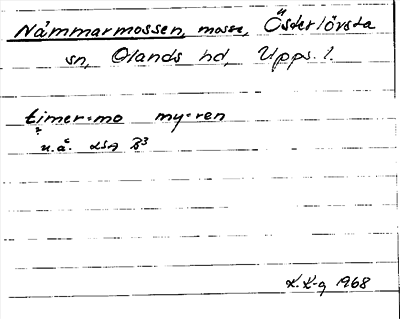 Nåmmarmossen, mosse, Österlövsta
sn, Olands hd, Upps. l.
timer-mo my-ren
u.å. LSA B³
K.K-g 1968